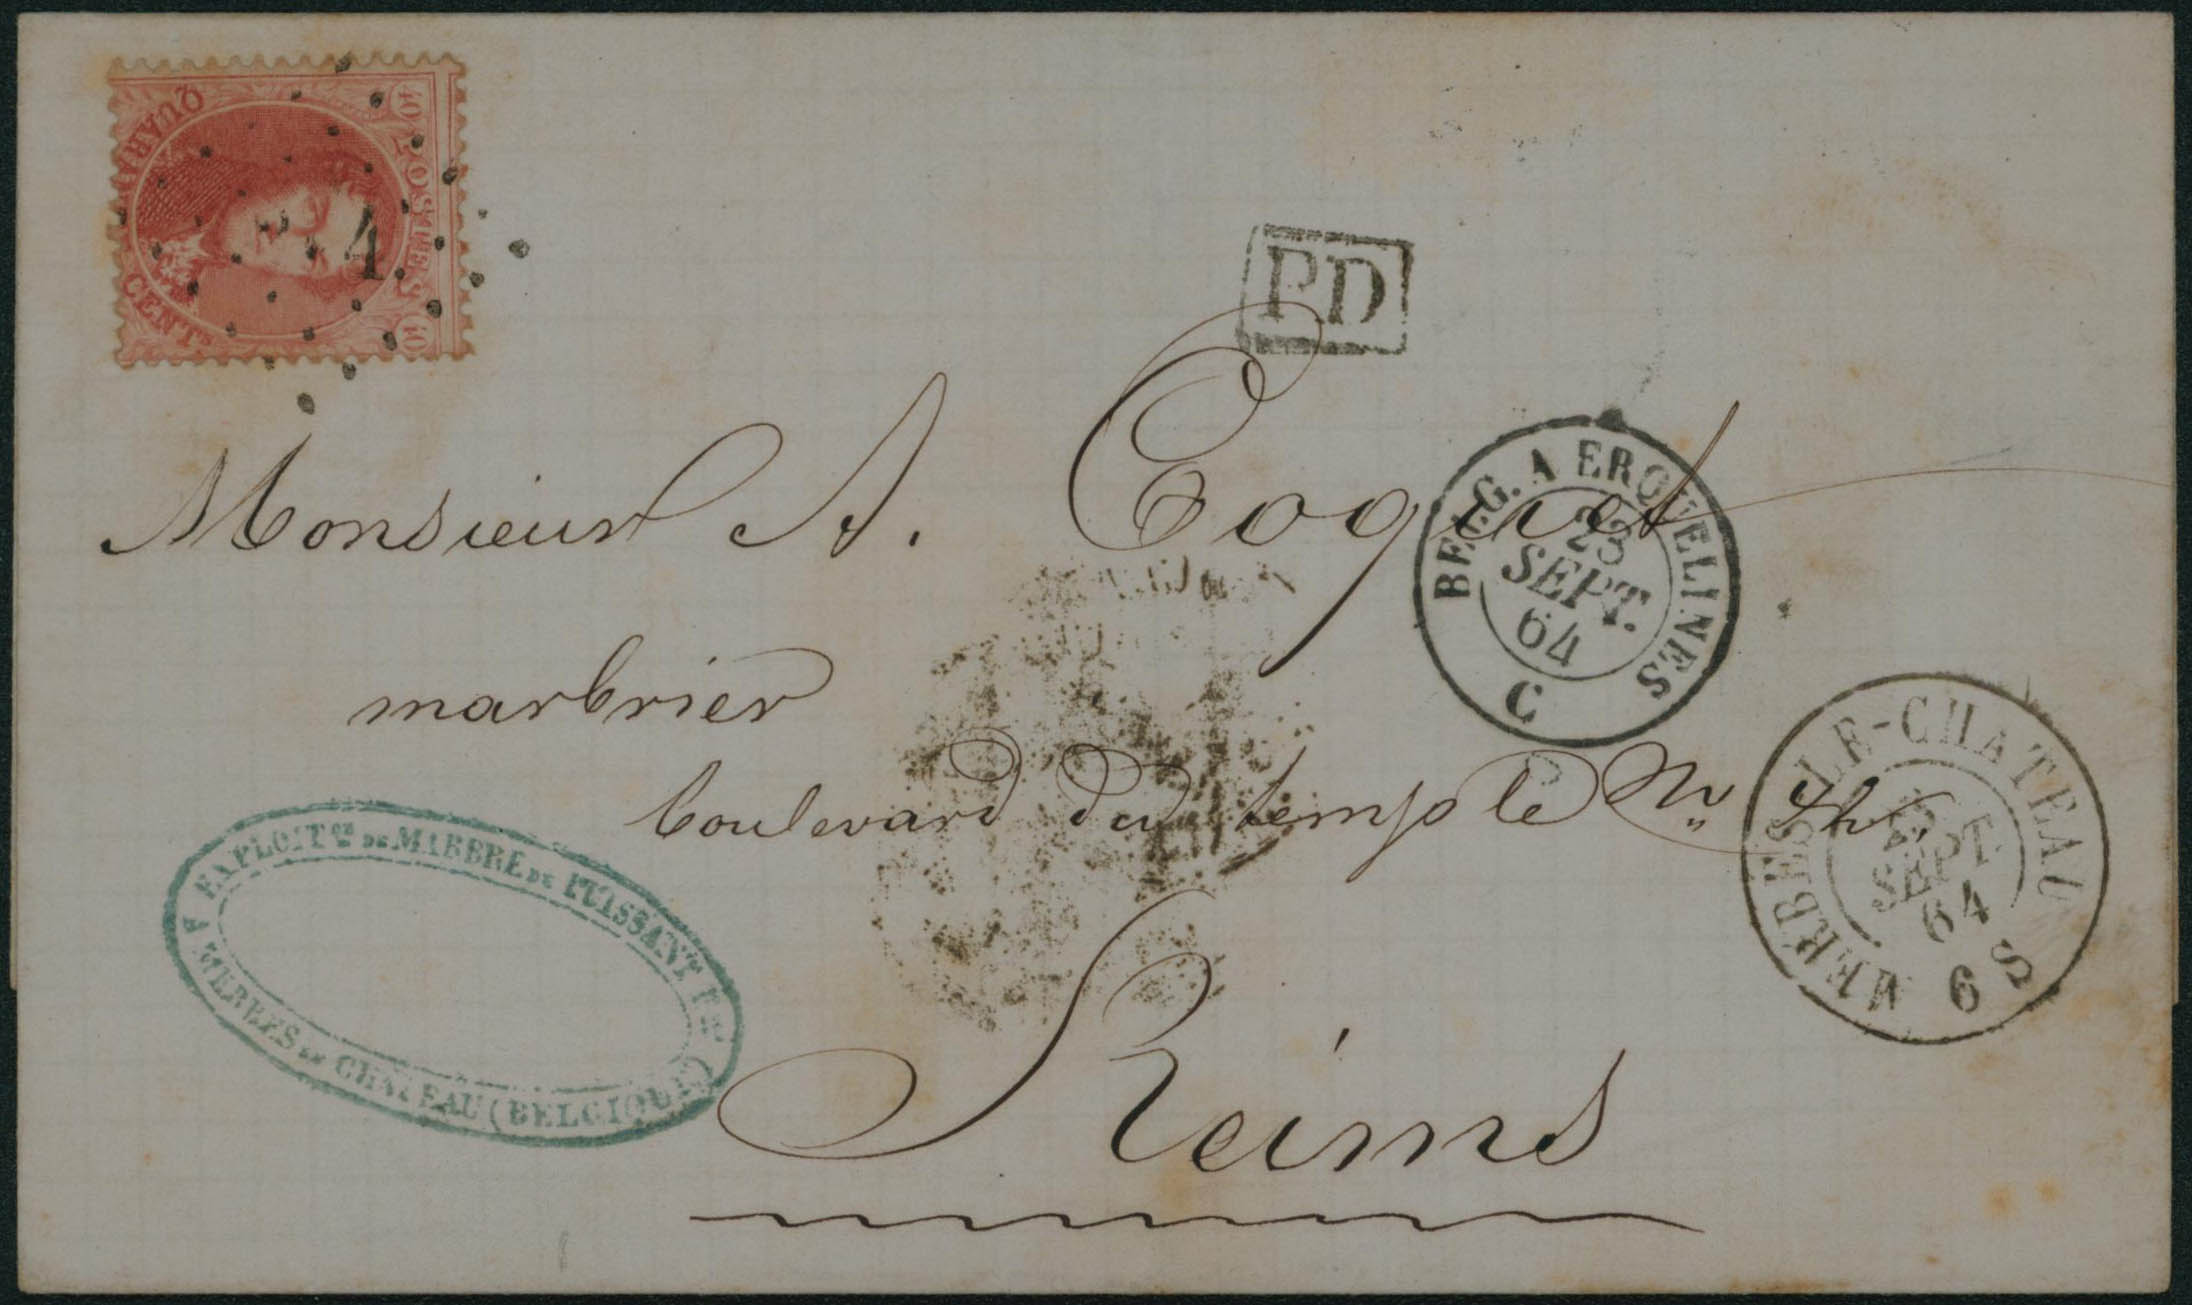 40 POSTES 40
CENTS
4
PD
BELG. A ERQUELINES
23
SEPT.
64
C
Monsieur A. Coquet
marbrier
boulevard du temple No
Reims
MERBES-LE-CHATEAU
SEPT.
64
6 S
EXPLOITON DE MARBRE DE PUISSANT
A MERBES LE CHATEAU (BELGIQUE)